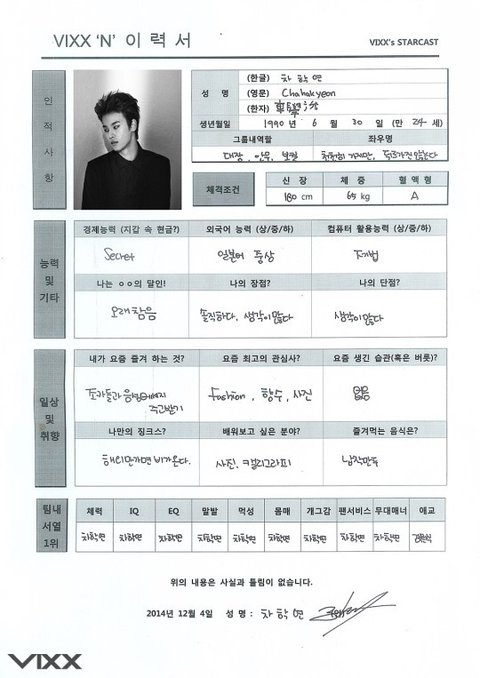 VIXX 'N' 이 력 서
VIXX's STARCAST
인적사항
성 명
(한글) 차 학 연
(영문) Chahakyeon
(한자) 車學沇
생년월일 1990 년 6 월 30 일 (만 24 세)
그룹내역할 좌우명
대장, 안무, 보컬 천천히 가지만, 뒤로가진 않는다
체격조건
신 장 체 중 혈 액 형
180 cm 65 kg A
능력 및 기타
경제능력 (지갑 속 현금?) 외국어 능력 (상/중/하) 컴퓨터 활용능력 (상/중/하)
Secret 일본어 중상
나는 ㅇㅇ의 달인! 나의 장점? 나의 단점?
오래참음 솔직하다, 생각이많다 생각이많다
일상 및 취향
내가 요즘 즐겨 하는 것? 요즘 최고의 관심사? 요즘 생긴 습관(혹은 버릇)?
조카들과 음성메세지 주고받기 fashion, 향수, 사진 없음
나만의 징크스? 배워보고 싶은 분야? 즐겨먹는 음식은?
해외만가면 비가온다. 사진, 캘리그라피 납작만두
팀내 서열 1위
체력 IQ EQ 말발 먹성 몸매 개그감 팬서비스 무대매너 애교
차학연 차학연 차학연 차학연 차학연 차학연 차학연 차학연 차학연 김원식
위의 내용은 사실과 틀림이 없습니다.
2014년 12월 4일 성 명 : 차 학 연
VIXX